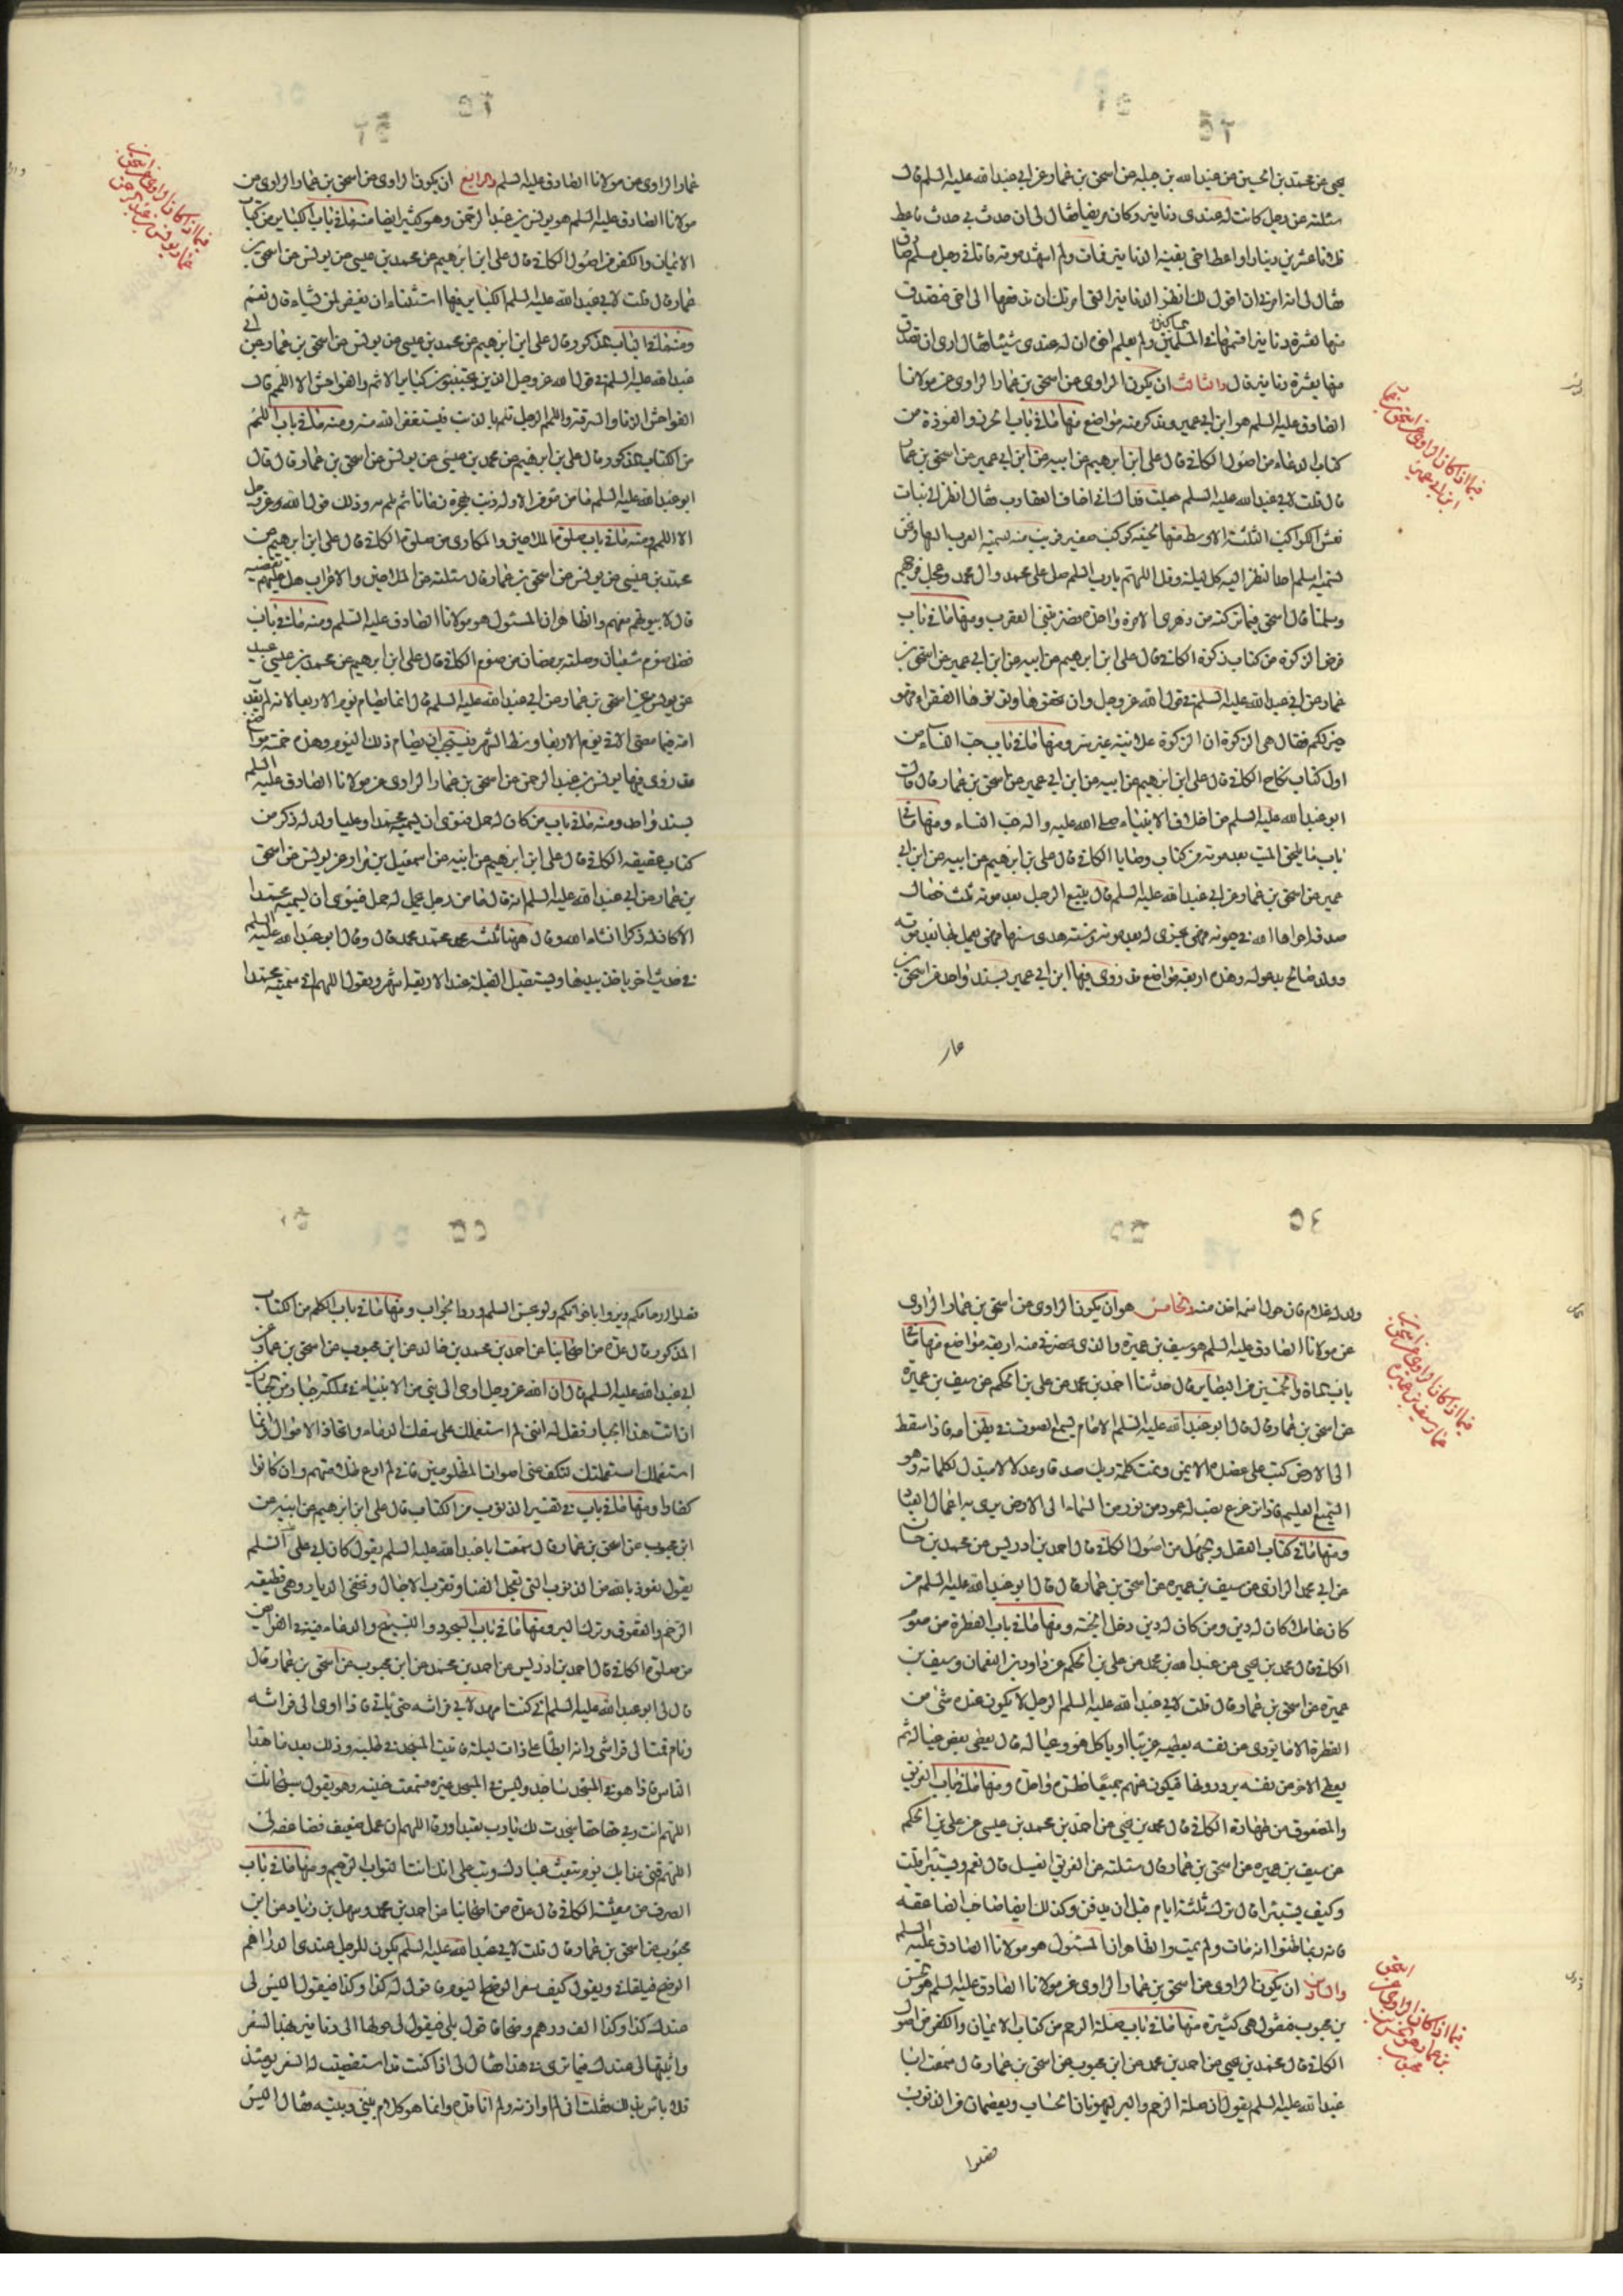 ٥٢
يحيى عن محمد بن الحسين عن عبد الله بن جبلة عن اسحق بن عمار عن ابي عبد الله عليه السلم قال
سئلته عن رجل كانت له عندي دنانير وكان مريضا فقال لي ان حدث بي حدث فاعط
فلانا عشرين دينارا واعط اخي بقية الدنانير فمات ولم اشهد موته فاتاني رجل مسلم صادق
فقال لي انه امرني ان اقول لك انظر الدنانير التي امرتك ان تدفعها الى اخي فتصدق
منها بعشرة دنانير اقسمها في المسلمين ولم يعلم اخي ان له عندي شيئا فقال ارى ان تصدق
منها بعشرة دنانير قال والثالث ان يكون الراوي عن اسحق بن عمار الراوي عن مولانا
الصادق عليه السلم هو ابن ابي عمير ونذكر منه مواضع منها ما في باب الحرز والعوذة من
كتاب الدعاء من اصول الكافي قال علي ابن ابرهيم عن ابيه عن ابن ابي عمير عن اسحق بن عمار
قال قلت لابي عبد الله عليه السلم جعلت فداك اني اخاف العقارب فقال انظر الى بنات
نعش الكواكب الثلثة الاوسط منها بجنبه كوكب صغير قريب منه تسميه العرب السها ونحن
نسميه اسلم احد النظر اليه كل ليلة وقل اللهم يا رب اسلم صل على محمد وال محمد وعجل فرجهم
وسلمنا قال اسحق فما تركته من دهري الا مرة واحدة فضربتني العقرب ومنها ما في باب
فرض الزكوة من كتاب زكوة الكافي قال علي ابن ابرهيم عن ابيه عن ابن ابي عمير عن اسحق بن
عمار عن ابي عبد الله عليه السلم في قول الله عز وجل وان تخفوها وتؤتوها الفقراء فهو
خير لكم فقال هي الزكوة ان الزكوة علانية غير سر ومنها ما في باب حب النساء من
اول كتاب نكاح الكافي قال علي ابن ابرهيم عن ابيه عن ابن ابي عمير عن اسحق بن عمار قال قال
ابو عبد الله عليه السلم من اخلاق الانبياء صلى الله عليه واله حب النساء ومنها ما في
باب ما يلحق الميت بعد موته من كتاب وصايا الكافي قال علي بن ابرهيم عن ابيه عن ابن ابي
عمير عن اسحق بن عمار عن ابي عبد الله عليه السلم قال يتبع الرجل بعد موته ثلث خصال
صدقة اجراها الله في حيوته فهي تجري له بعد موته وسنة هدى سنها فهي يعمل بها بعد موته
وولد صالح يدعو له وهذه اربعة مواضع قد روى فيها ابن ابي عمير بسند واحد عن اسحق بن
عمار
فيما اذا كان الراوي عن اسحق بن عمار
ابن ابي عمير
٥٣
عمار الراوي عن مولانا الصادق عليه السلم والرابع ان يكون الراوي عن اسحق بن عمار الراوي عن
مولانا الصادق عليه السلم هو يونس بن عبد الرحمن وهو كثير ايضا منه ما في باب الكبائر من كتاب
الايمان والكفر من اصول الكافي قال علي ابن ابرهيم عن محمد بن عيسى عن يونس عن اسحق بن
عمار قال قلت لابي عبد الله عليه السلم الكبائر فيها استثناء ان يغفر لمن يشاء قال نعم
ومنه ما في الباب المذكور قال علي ابن ابرهيم عن محمد بن عيسى عن يونس عن اسحق بن عمار عن ابي
عبد الله عليه السلم في قول الله عز وجل الذين يجتنبون كبائر الاثم والفواحش الا اللمم قال
الفواحش الزنا والسرقة واللمم الرجل يلم بالذنب فيستغفر الله منه ومنه ما في باب اللمم
من الكتاب المذكور قال علي بن ابرهيم عن محمد بن عيسى عن يونس عن اسحق بن عمار قال قال
ابو عبد الله عليه السلم ما من مؤمن الا وله ذنب يهجره زمانا ثم يلم به وذلك قول الله عز وجل
الا اللمم ومنه ما في باب صلوة الملاحين والمكاري من صلوة الكافي قال علي ابن ابرهيم عن
محمد بن عيسى عن يونس عن اسحق بن عمار قال سئلته عن الملاحين والاعراب هل عليهم تقصير
قال لا بيوتهم معهم والظاهر ان المسئول هو مولانا الصادق عليه السلم ومنه ما في باب
فضل صوم شعبان وصلته برمضان من صوم الكافي قال علي ابن ابرهيم عن محمد بن عيسى بن عبيد
عن يونس عن اسحق بن عمار عن ابي عبد الله عليه السلم قال انما يصام يوم الاربعا لانه لم يعذب
امة فيما مضى الا في يوم الاربعا وسط الشهر فيستحب ان يصام ذلك اليوم وهذه خمسة مواضع
قد روى فيها يونس بن عبد الرحمن عن اسحق بن عمار الراوي عن مولانا الصادق عليه السلم
بسند واحد ومنه ما في باب من كان له حمل فنوى ان يسميه محمدا وعليا ولد له ذكر من
كتاب عقيقة الكافي قال علي ابن ابرهيم عن ابيه عن اسمعيل بن مرار عن يونس عن اسحق
بن عمار عن ابي عبد الله عليه السلم انه قال ما من رجل يحمل له حمل فينوي ان يسميه محمدا
الا كان له ذكرا انشاء الله وقال ههنا ثلثة كلهم محمد محمد محمد قال وقال ابو عبد الله عليه السلم
في حديث اخر ياخذ بيدها ويستقبل القبلة عند الاربعة اشهر ويقول اللهم اني سميته محمدا
فيما اذا كان الراوي عن اسحق بن
عمار يونس بن عبد الرحمن
٥٤
ولد له غلام فان حول اسمه اخذ منه والخامس هو ان يكون الراوي عن اسحق بن عمار الراوي
عن مولانا الصادق عليه السلم هو سيف بن عميرة والذي يحضرني منه اربعة مواضع منها ما في
باب من البصاير قال حدثنا احمد بن محمد عن علي بن الحكم عن سيف بن عميرة
عن اسحق بن عمار قال قال ابو عبد الله عليه السلم الامام يسمع الصوت في بطن امه فاذا سقط
الى الارض كتب على عضده الايمن وتمت كلمة ربك صدقا وعدلا لا مبدل لكلماته وهو
السميع العليم فاذا ترعرع نصب له عمود من نور من السماء الى الارض يرى به اعمال العباد
ومنها ما في كتاب العقل والجهل من اصول الكافي قال احمد بن ادريس عن محمد بن حسان
عن ابي محمد الرازي عن سيف بن عميرة عن اسحق بن عمار قال قال ابو عبد الله عليه السلم من
كان عاقلا كان له دين ومن كان له دين دخل الجنة ومنها ما في باب الفطرة من صوم
الكافي قال محمد بن يحيى عن عبد الله بن محمد عن علي بن الحكم عن داود بن النعمان وسيف بن
عميرة عن اسحق بن عمار قال قلت لابي عبد الله عليه السلم الرجل لا يكون عنده شيء من
الفطرة الا ما يؤدي عن نفسه يعطيه غريبا او ياكل هو وعياله قال يعطي بعض عياله ثم
يعطي الاخر عن نفسه يرددونها فيكون عنهم جميعا فطرة واحدة ومنها ما في باب الغريق
والمصعوق من طهارة الكافي قال محمد بن يحيى عن احمد بن محمد بن عيسى عن علي بن الحكم
عن سيف بن عميرة عن اسحق بن عمار قال سئلته عن الغريق ايغسل قال نعم ويستبرا قلت
وكيف يستبرا قال يترك ثلثة ايام قبل ان يدفن وكذلك ايضا صاحب الصاعقة
فانه ربما ظنوا انه مات ولم يمت والظاهر ان المسئول هو مولانا الصادق عليه السلم
والسادس ان يكون الراوي عن اسحق بن عمار الراوي عن مولانا الصادق عليه السلم هو حسن
بن محبوب فنقول هي كثيرة منها ما في باب صلة الرحم من كتاب الايمان والكفر من اصول
الكافي قال محمد بن يحيى عن احمد بن محمد عن ابن محبوب عن اسحق بن عمار قال سمعت ابا
عبد الله عليه السلم يقول ان صلة الرحم والبر ليهونان الحساب ويعصمان من الذنوب
فصلوا
فيما اذا كان الراوي عن اسحق بن
عمار سيف بن عميرة
فيما اذا كان الراوي عن اسحق
بن عمار هو حسن بن
محبوب
٥٥
فصلوا ارحامكم وبروا باخوانكم ولو بحسن السلم ورد الجواب ومنها ما في باب الكظم من الكتاب
المذكور قال عدة من اصحابنا عن احمد بن محمد بن خالد عن ابن محبوب عن اسحق بن عمار عن
ابي عبد الله عليه السلم قال ان الله عز وجل اوحى الى نبي من الانبياء في مملكة جبار من الجبارين
ان ائت هذا الجبار فقل له انني لم استعملك على سفك الدماء واتخاذ الاموال وانما
استعملتك لتكف عني اصوات المظلومين فاني لم ادع ظلامتهم وان كانوا
كفارا ومنها ما في باب في تفسير الذنوب من الكتاب قال علي ابن ابرهيم عن ابيه عن
ابن محبوب عن اسحق بن عمار قال سمعت ابا عبد الله عليه السلم يقول كان ابي عليه السلم
يقول نعوذ بالله من الذنوب التي تعجل الفناء وتقرب الاجال وتخلي الديار وهي قطيعة
الرحم والعقوق وترك البر ومنها ما في باب السجود والتسبيح والدعاء فيه في الفرايض
من صلوة الكافي قال احمد بن ادريس عن احمد بن محمد عن ابن محبوب عن اسحق بن عمار قال
قال لي ابو عبد الله عليه السلم اني كنت امهد لابي فراشه حتى ياتي فاذا اوى الى فراشه
ونام قمت الى فراشي وانه ابطا علي ذات ليلة فاتيت المسجد في طلبه وذلك بعد ما هدا
الناس فاذا هو في المسجد ساجد وليس في المسجد غيره فسمعت حنينه وهو يقول سبحانك
اللهم انت ربي حقا حقا سجدت لك يا رب تعبدا ورقا اللهم ان عملي ضعيف فضاعفه لي
اللهم قني عذابك يوم تبعث عبادك وتب علي انك انت التواب الرحيم ومنها ما في باب
الصرف من معيشة الكافي قال عدة من اصحابنا عن احمد بن محمد وسهل بن زياد عن ابن
محبوب عن اسحق بن عمار قال قلت لابي عبد الله عليه السلم يكون للرجل عندي الدراهم
الوضح فيلقاني ويقول كيف سعر الوضح اليوم فاقول له كذا وكذا فيقول اليس لي
عندك كذا وكذا الف درهم وضحا فاقول بلى فيقول لي حولها الى دنانير بهذا السعر
واثبتها لي عندك فما ترى في هذا فقال لي اذا كنت قد استقصيت له السعر يومئذ
فلا باس بذلك فقلت اني لم اوازنه ولم اناقده وانما هو كلام بيني وبينه فقال اليس